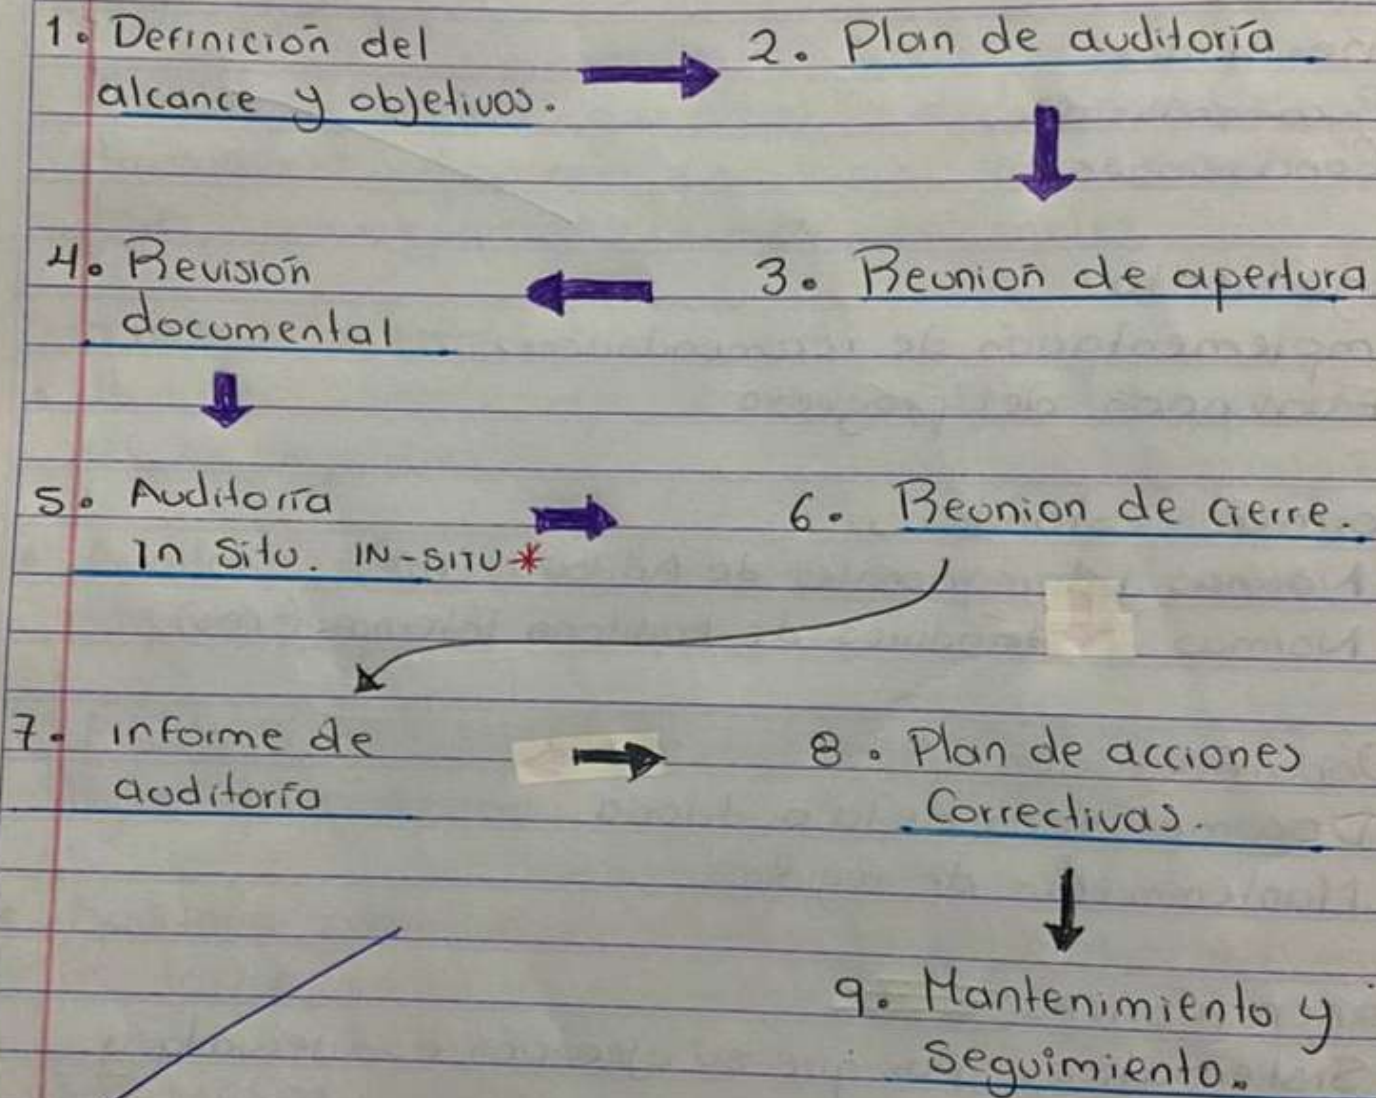 1. Definición del
alcance y objetivos.
2. Plan de auditoría
3. Reunión de apertura
4. Revisión
documental
5. Auditoría
In Situ. IN-SITU*
6. Reunion de cierre.
7. informe de
auditoría
8. Plan de acciones
Correctivas.
9. Mantenimiento y
Seguimiento.